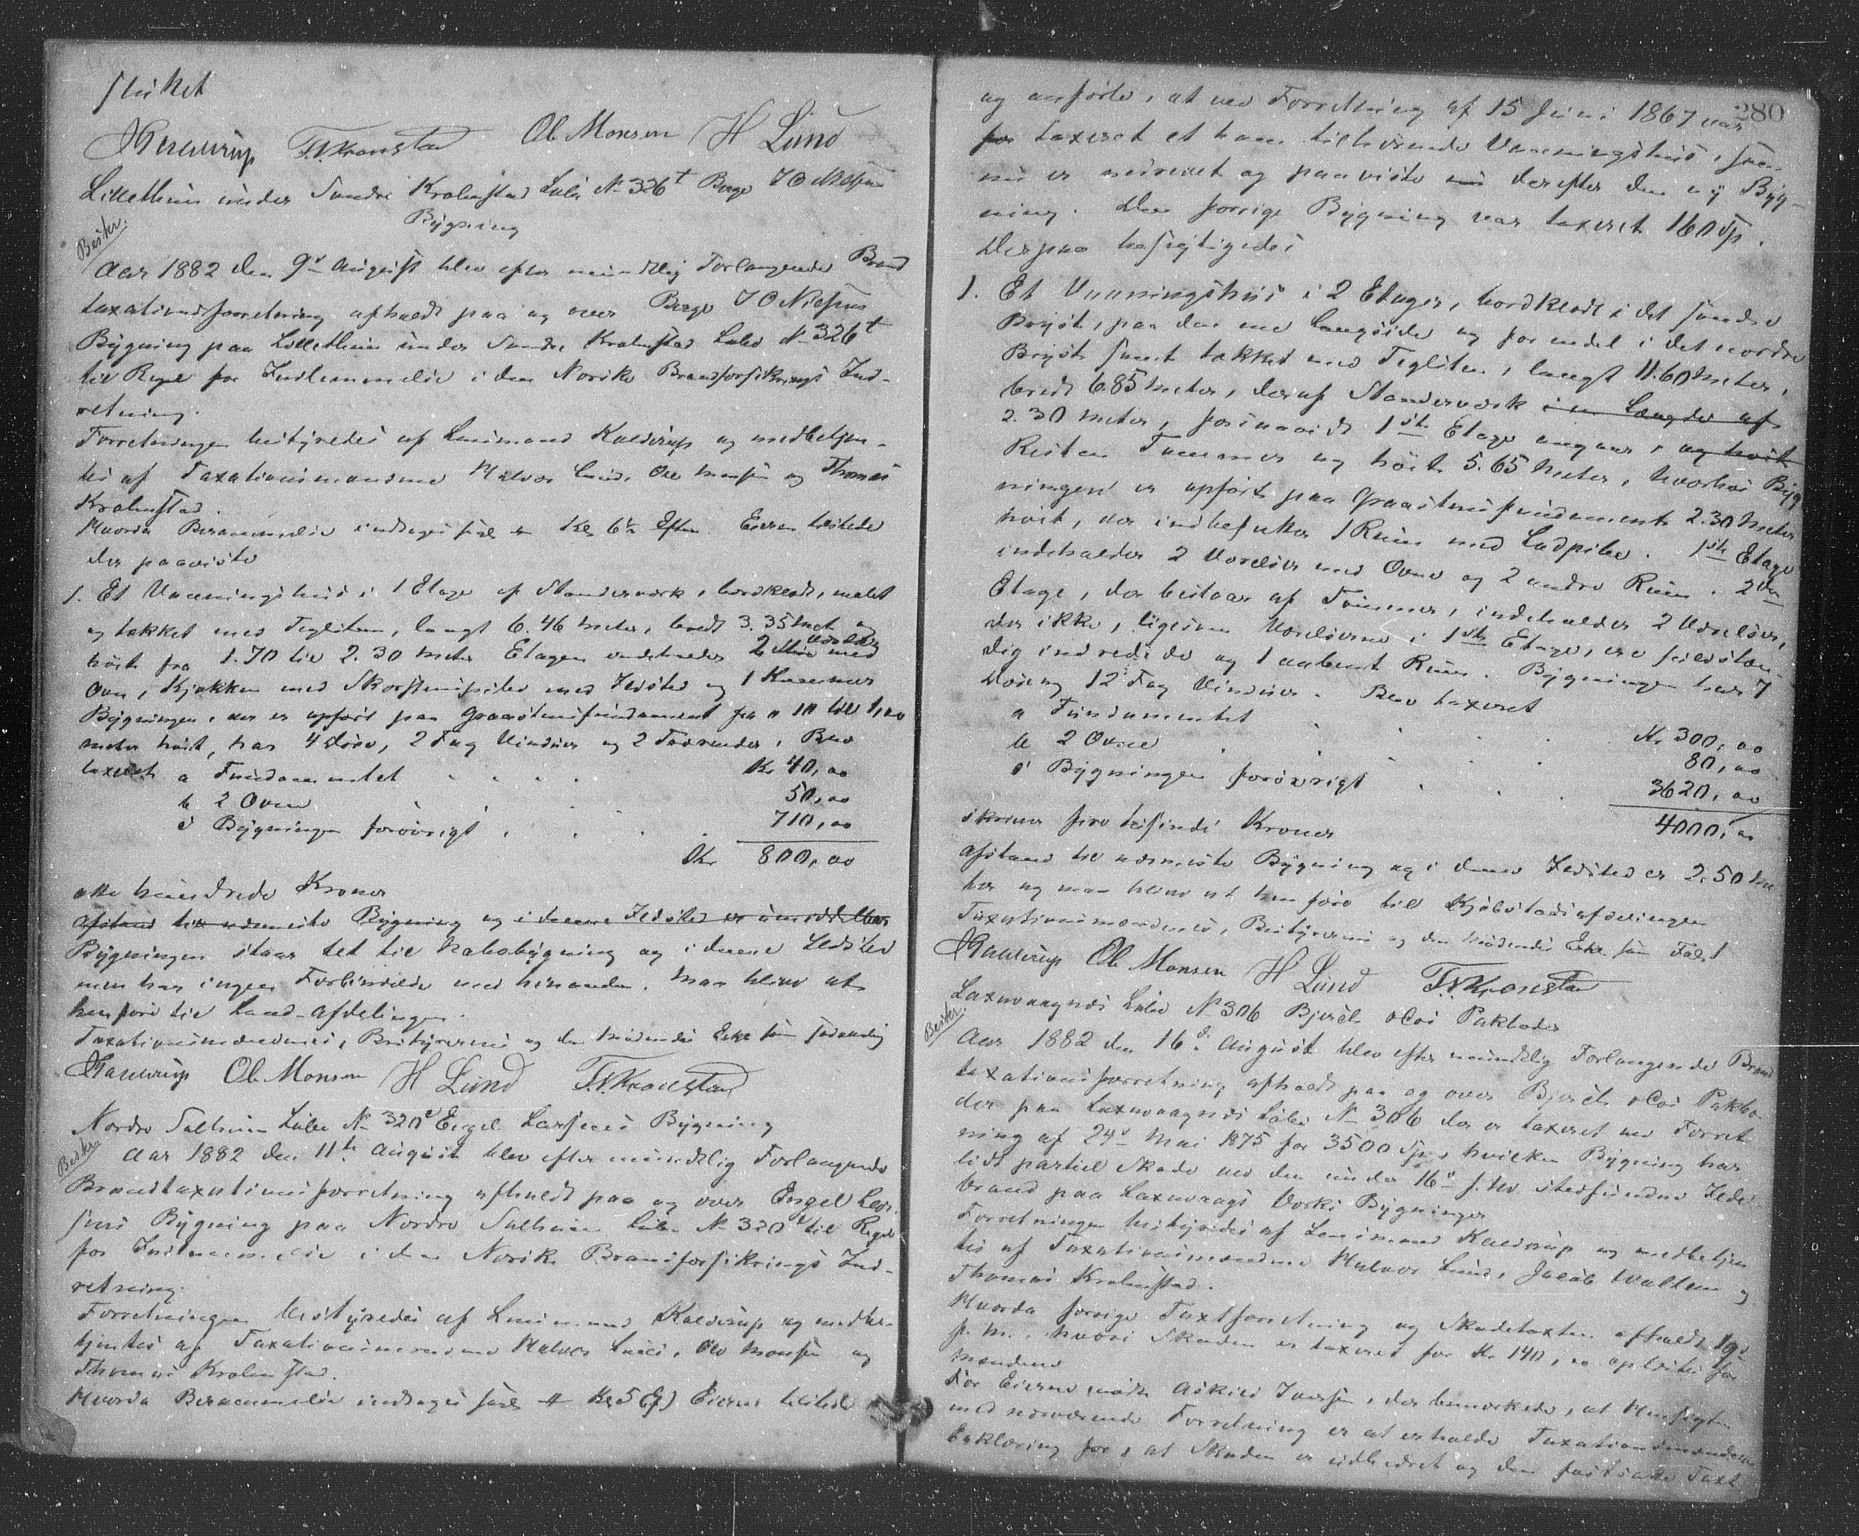 sluttet
Kaurup T. Kronstad Ole Monsen H Lund
Lillethun under Søndre Krohnstad Løbe No 326t Berge J O Nilsens
Bygning
Beskr.
Aar 1882 den 9de August blev efter mundtlig Forlangende Brand
taxationsforretning afholdt paa og over Berge J O Nilsens
Bygning paa Lillethun under Søndre Krohnstad Løbe No 326t
til Regel for Indlemmelse i den Norske Brandforsikrings Ind-
retning.
Forretningen bestyredes af Lensmand Kaurup og medbetjen-
tes af Taxationsmændene Halvor Lund, Ole Monsen og Thomas
Krohnstad.
Hvorda Berammelse indtoges Kl 6 1/2 Eftm. Eieren tilstede
der paaviste
1. Et Vaaningshuus i 1 Etage af Standerværk, bordklædt, malet
og tækket med Teglsten, langt 6.46 Meter, bredt 3.35 Met og
høit fra 1.70 til 2.30 Meter Etagen indeholder 2 Værelser med
Ovn, Kjøkken med Skorstenspibe med Ildsted og 1 Kammer
Bygningen, der er opført paa Graastensfundament fra 0.10 til 1,00
Meter høit, har 4 Døre, 2 Fag Vinduer og 2 Træender. Blev
taxeret a Fundamentet Kr 40,00
b 2 Ovne 50,00
c Bygningen forøvrigt 710,00
Kr 800,00
otte hundrede Kroner
Afstand til nærmeste Bygning og i denne Ildsted er umiddelbar
Bygningen staar tet til Nabobygning og i denne Ildsted
men har ingen Forbindelse med hinanden. Man blev at
henføre til Land-afdelingen.
Taxationsmændenes, Bestyrerens og den mødendes Erkl som sædvanlig
Kaurup Ole Monsen H Lund T. Kronstad
Nordre Solheim Løbe No 320e Engel Larsens Bygning
Beskr.
Aar 1882 den 11te August blev efter mundtlig Forlangende
Brandtaxationsforretning afholdt paa og over Engel Lar-
sens Bygning paa Nordre Solheim Løbe No 320e til Regel
for Indlemmelse i den Norske Brandforsikrings Ind-
retning.
Forretningen bestyredes af Lensmand Kaurup og medbe-
tjentes af Taxationsmændene Halvor Lund, Ole Monsen og
Thomas Krohnstad.
Hvorda Berammelse indtoges Kl 5 Ef) Eieren tilstede
280
og anførte, at ved Forretning af 15 Juni 1867 var
for taxeret et ham tilhørende Vaaningshuus, som
nu er nedrevet og paaviste nu derefter den ny Byg-
ning. Den forrige Bygning var taxeret 160 Sp.
Derpaa besigtigedes
1. Et Vaaningshuus i 2 Etager, bordklædt i det søndre
Bryst, paa den ene Langside og for endel i det nordre
Bryst samt tækket med Teglsten, langt 11.60 Meter,
bredt 6.85 Meter, deraf Standerværk i en Længde af
2.30 Meter, forsaavidt 1ste Etage angaar, og høit
Resten Tømmer og høit 5.65 Meter, hvorhos Byg
ningen er opført paa Graastensfundament 2.30 Meter
høit, der indbefatter 1 Rum med Ladpibe. 1ste Etage
indeholder 2 Værelser med Ovne og 2 andre Rum. 2den
Etage, der bestaar af Tømmer, indeholder 2 Værelser,
der ikke, ligesom Værelserne i 1ste Etage, ere fuldstæn-
dig indredede og 1 aabent Rum. Bygningen har 7
Døre og 12 Fag Vinduer. Blev taxeret
a Fundamentet Kr 300,00
b 2 Ovne 80,00
c Bygningen forøvrigt 3620,00
skriver fire tusinde Kroner 4000,00
Afstand til nærmeste Bygning og i denne Ildsted er 2.50 Me-
ter og man blev at henføre til Kjøbstadsafdelingen
Taxationsmændenes, Bestyrerens og den mødendes Erkl som Føl.
Kaurup Ole Monsen H Lund T. Kronstad
Laxevaagnes Løbe No 306 Bjerch & Cos Pakboder
Beskr.
Aar 1882 den 16de August blev efter mundtlig Forlangende Brand
taxationsforretning afholdt paa og over Bjerch & Cos Pakbo-
der paa Laxevaagnes Løbe No 306 der er taxeret ved Forret-
ning af 24de Mai 1875 for 3500 Sp, hvilken Bygning har
lidt partiel Skade ved den under 16de f.M. stedfundne Ilde-
brand paa Laxevaags Værks Bygninger
Forretningen bestyredes af Lensmand Kaurup og medbetjen
tes af Taxationsmændene Halvor Lund, Jacob Waltem og
Thomas Krohnstad.
Hvorda forrige Taxtforretning og Skadetaxten afholdt 19de
f.M. hvori Skaden er taxeret for Kr 140,00 oplæstes for
mændene
For Eierne mødte Askild Iversen, der bemærkede, at Hensigten
med nærværende Forretning er at erholde Taxationsmændenes
Erklæring for, at Skaden er udbedret og den fastsatte Taxt